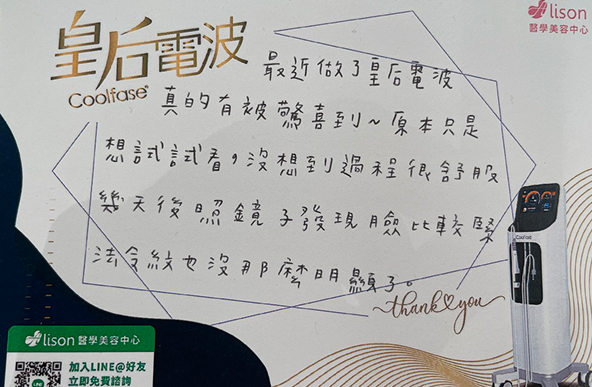 皇后電波
Coolfase®
Alison
醫學美容中心
最近做了皇后電波
真的有被驚喜到~原本只是
想試試看,沒想到過程很舒服
幾天後照鏡子發現臉比較緊
法令紋也沒那麼明顯了。
thank you
Coolfase
Alison 醫學美容中心
加入LINE@好友
立即免費諮詢
LINE